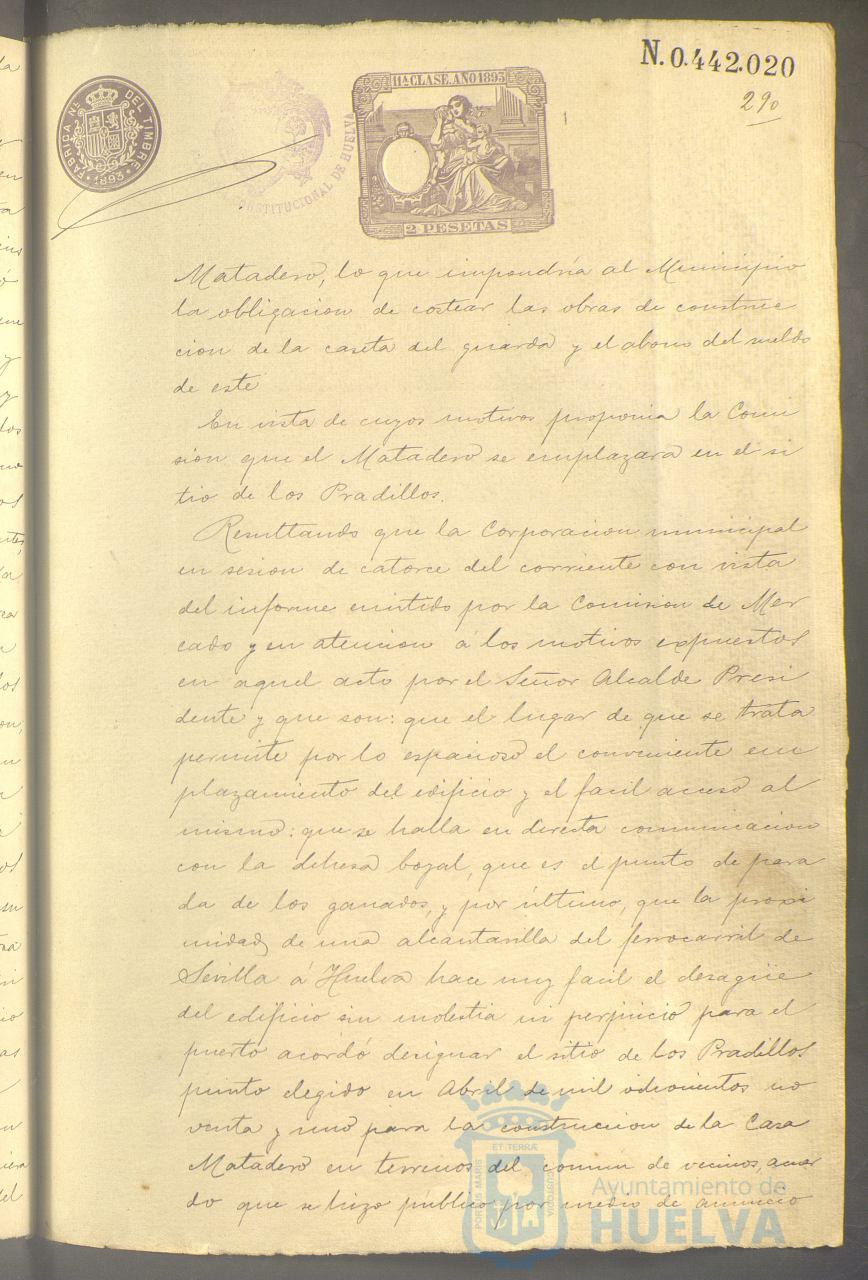 N.0.442.020
290
FABRICA Nal DEL TIMBRE
1893
CONSTITUCIONAL DE HUELVA
11ª CLASE. AÑO 1893
2 PESETAS
Matadero, lo que impondría al Municipio
la obligacion de costear las obras de construc
cion de la caseta del guarda y el abono del sueldo
de este
En vista de cuyos motivos proponia la Comi
sion que el Matadero se emplazara en el si
tio de los Pradillos.
Resultando que la Corporacion municipal
en sesion de catorce del corriente con vista
del informe emitido por la Comision de Mer
cado y en atencion á los motivos expuestos
en aquel acto por el Señor Alcalde Presi
dente y que son: que el lugar de que se trata
permite por lo espacioso el conveniente em
plazamiento del edificio y el facil acceso al
mismo: que se halla en directa comunicacion
con la dehesa boyal, que es el punto de para
da de los ganados, y por último, que la proxi
midad de una alcantarilla del ferrocarril de
Sevilla á Huelva hace muy facil el desagüe
del edificio sin molestia ni perjuicio para el
puerto acordó designar el sitio de los Pradillos
punto elegido en Abril de mil ochocientos no
venta y uno para la construccion de la Casa
Matadero en terrenos del comun de vecinos, acuer
do que se hizo público por medio de anuncio
PORTUS MARIS ET TERRÆ CUSTODIA
Ayuntamiento de
HUELVA